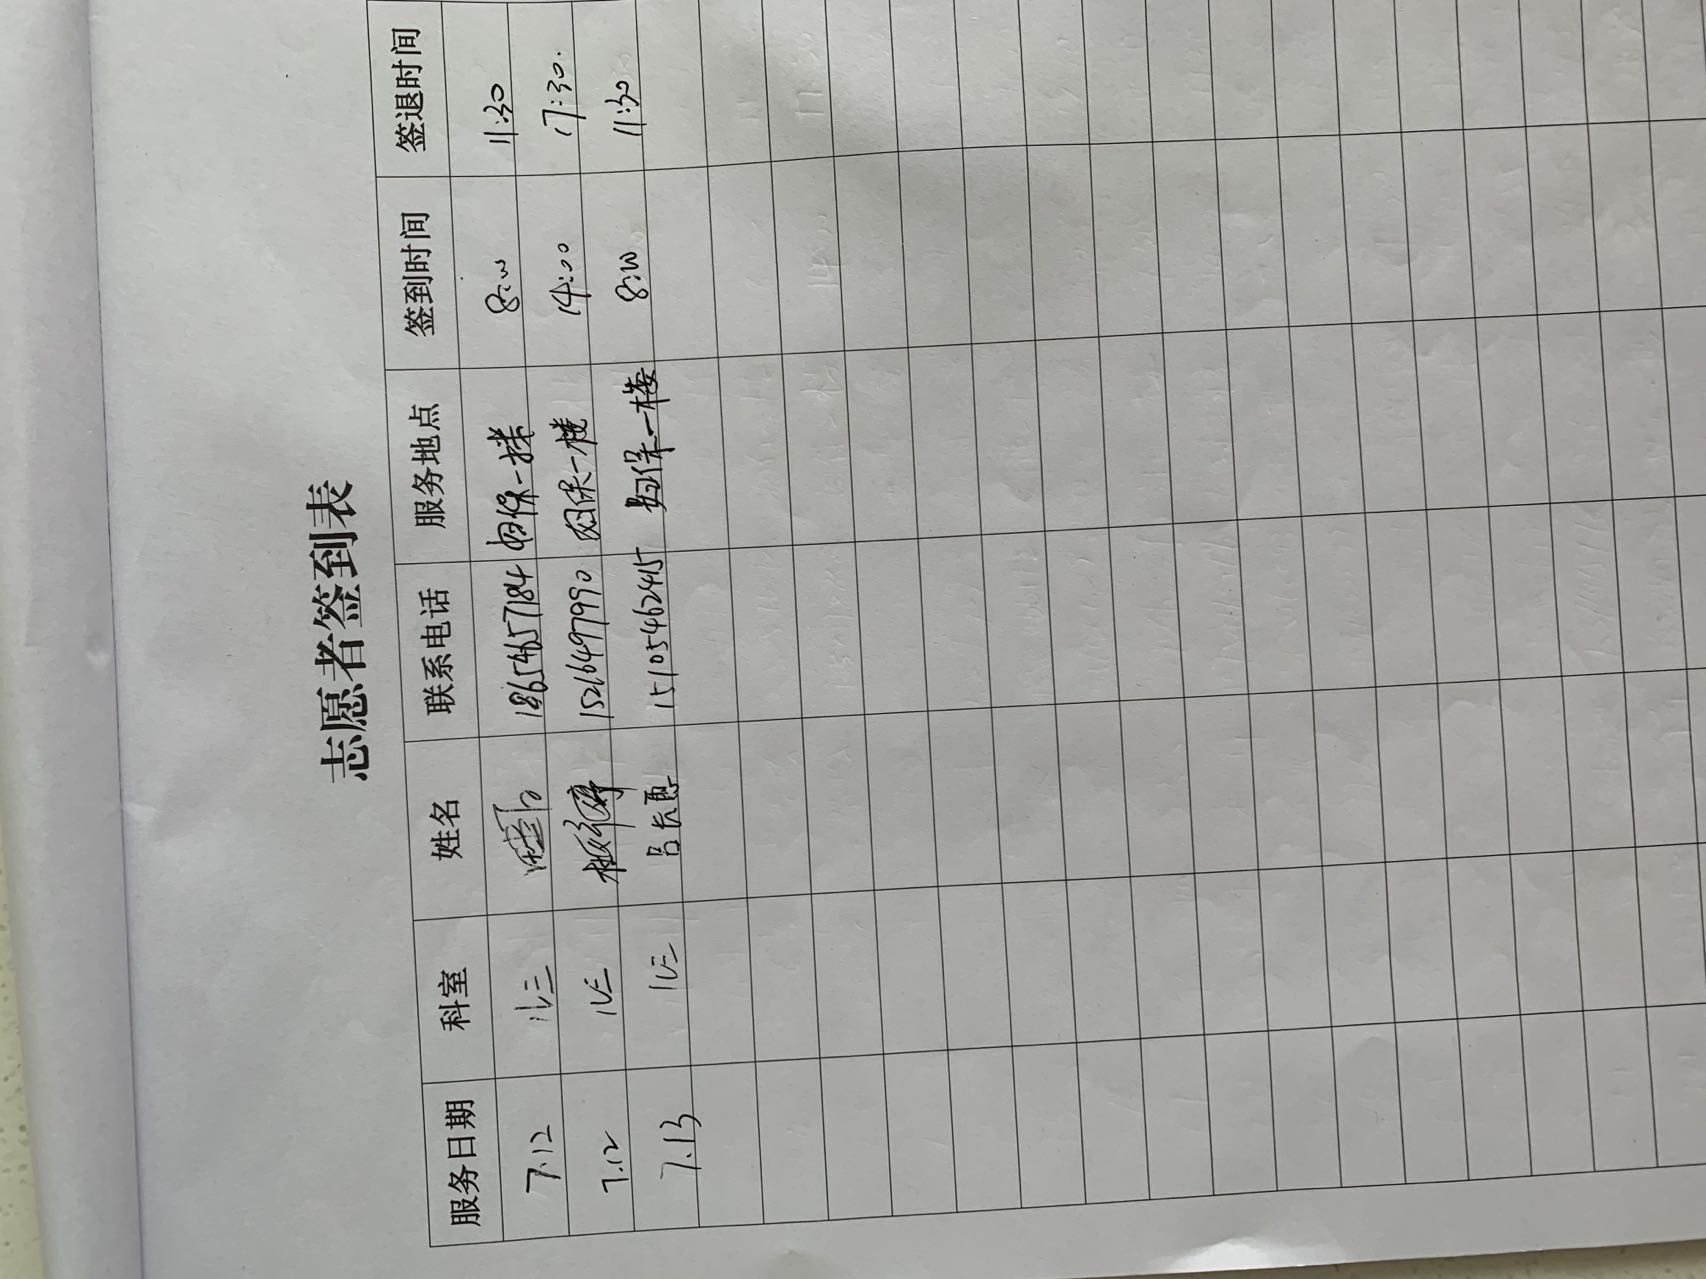 志愿者签到表
服务日期 科室 姓名 联系电话 服务地点 签到时间 签退时间
7.12 儿三 18654657184 妇保一楼 8:00 11:30
7.12 儿三 15216497990 妇保一楼 14:00 17:30.
7.13 儿三 吕长 15105462415 妇保一楼 8:00 11:30